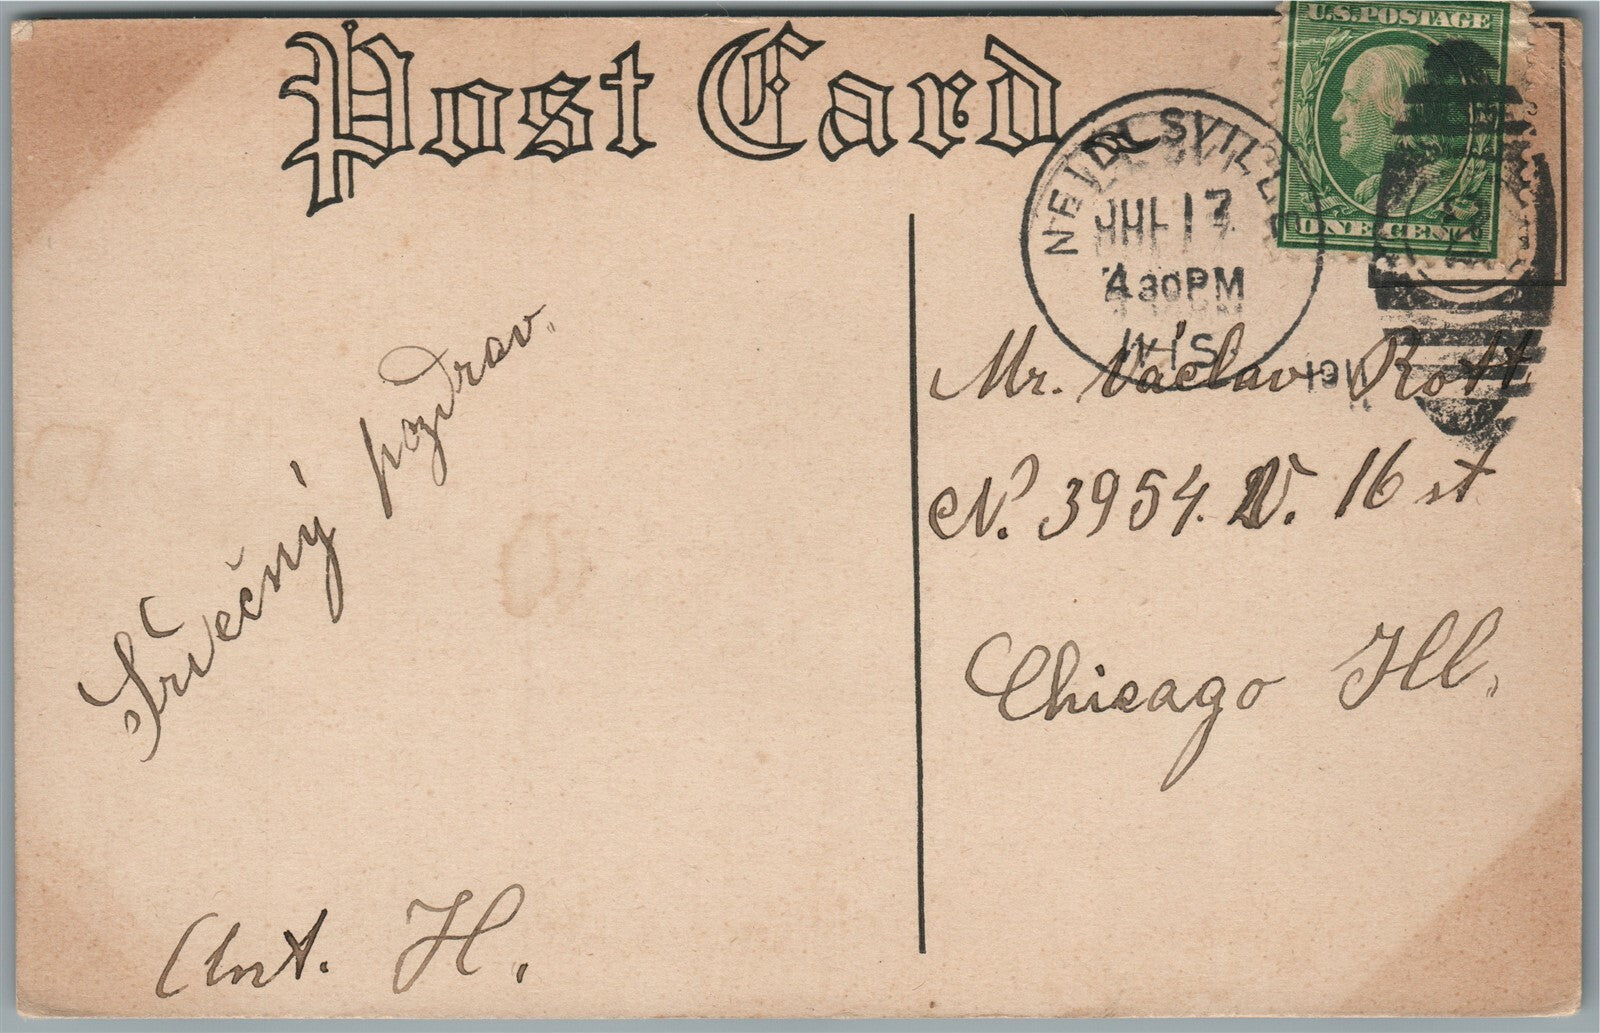 Post Card
U.S.POSTAGE
ONE CENT
NEILLSVILLE
JUL 17
4 30PM
WIS.
1911
Srdečný pozdrav.
Ant. H.
Mr. Václav Rott
N. 3954. W. 16 st
Chicago Ill.